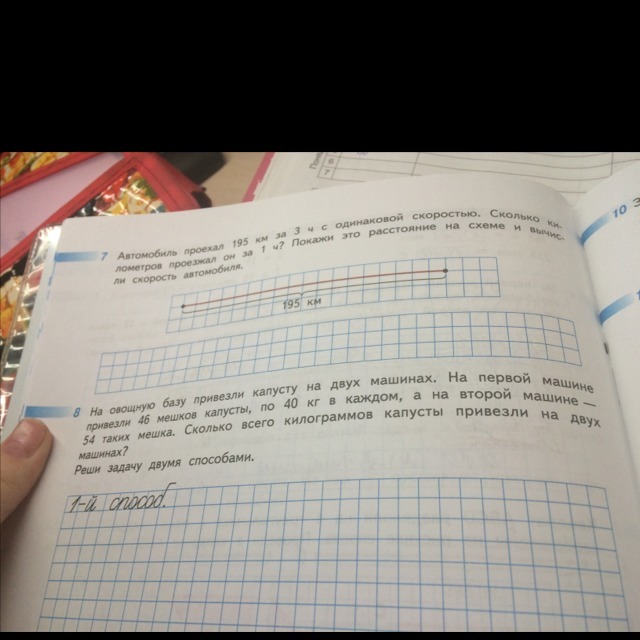 7 Автомобиль проехал 195 км за 3 ч с одинаковой скоростью. Сколько ки-
лометров проезжал он за 1 ч? Покажи это расстояние на схеме и вычис-
ли скорость автомобиля.
195 км
8 На овощную базу привезли капусту на двух машинах. На первой машине
привезли 46 мешков капусты, по 40 кг в каждом, а на второй машине —
54 таких мешка. Сколько всего килограммов капусты привезли на двух
машинах?
Реши задачу двумя способами.
1-й способ.
10